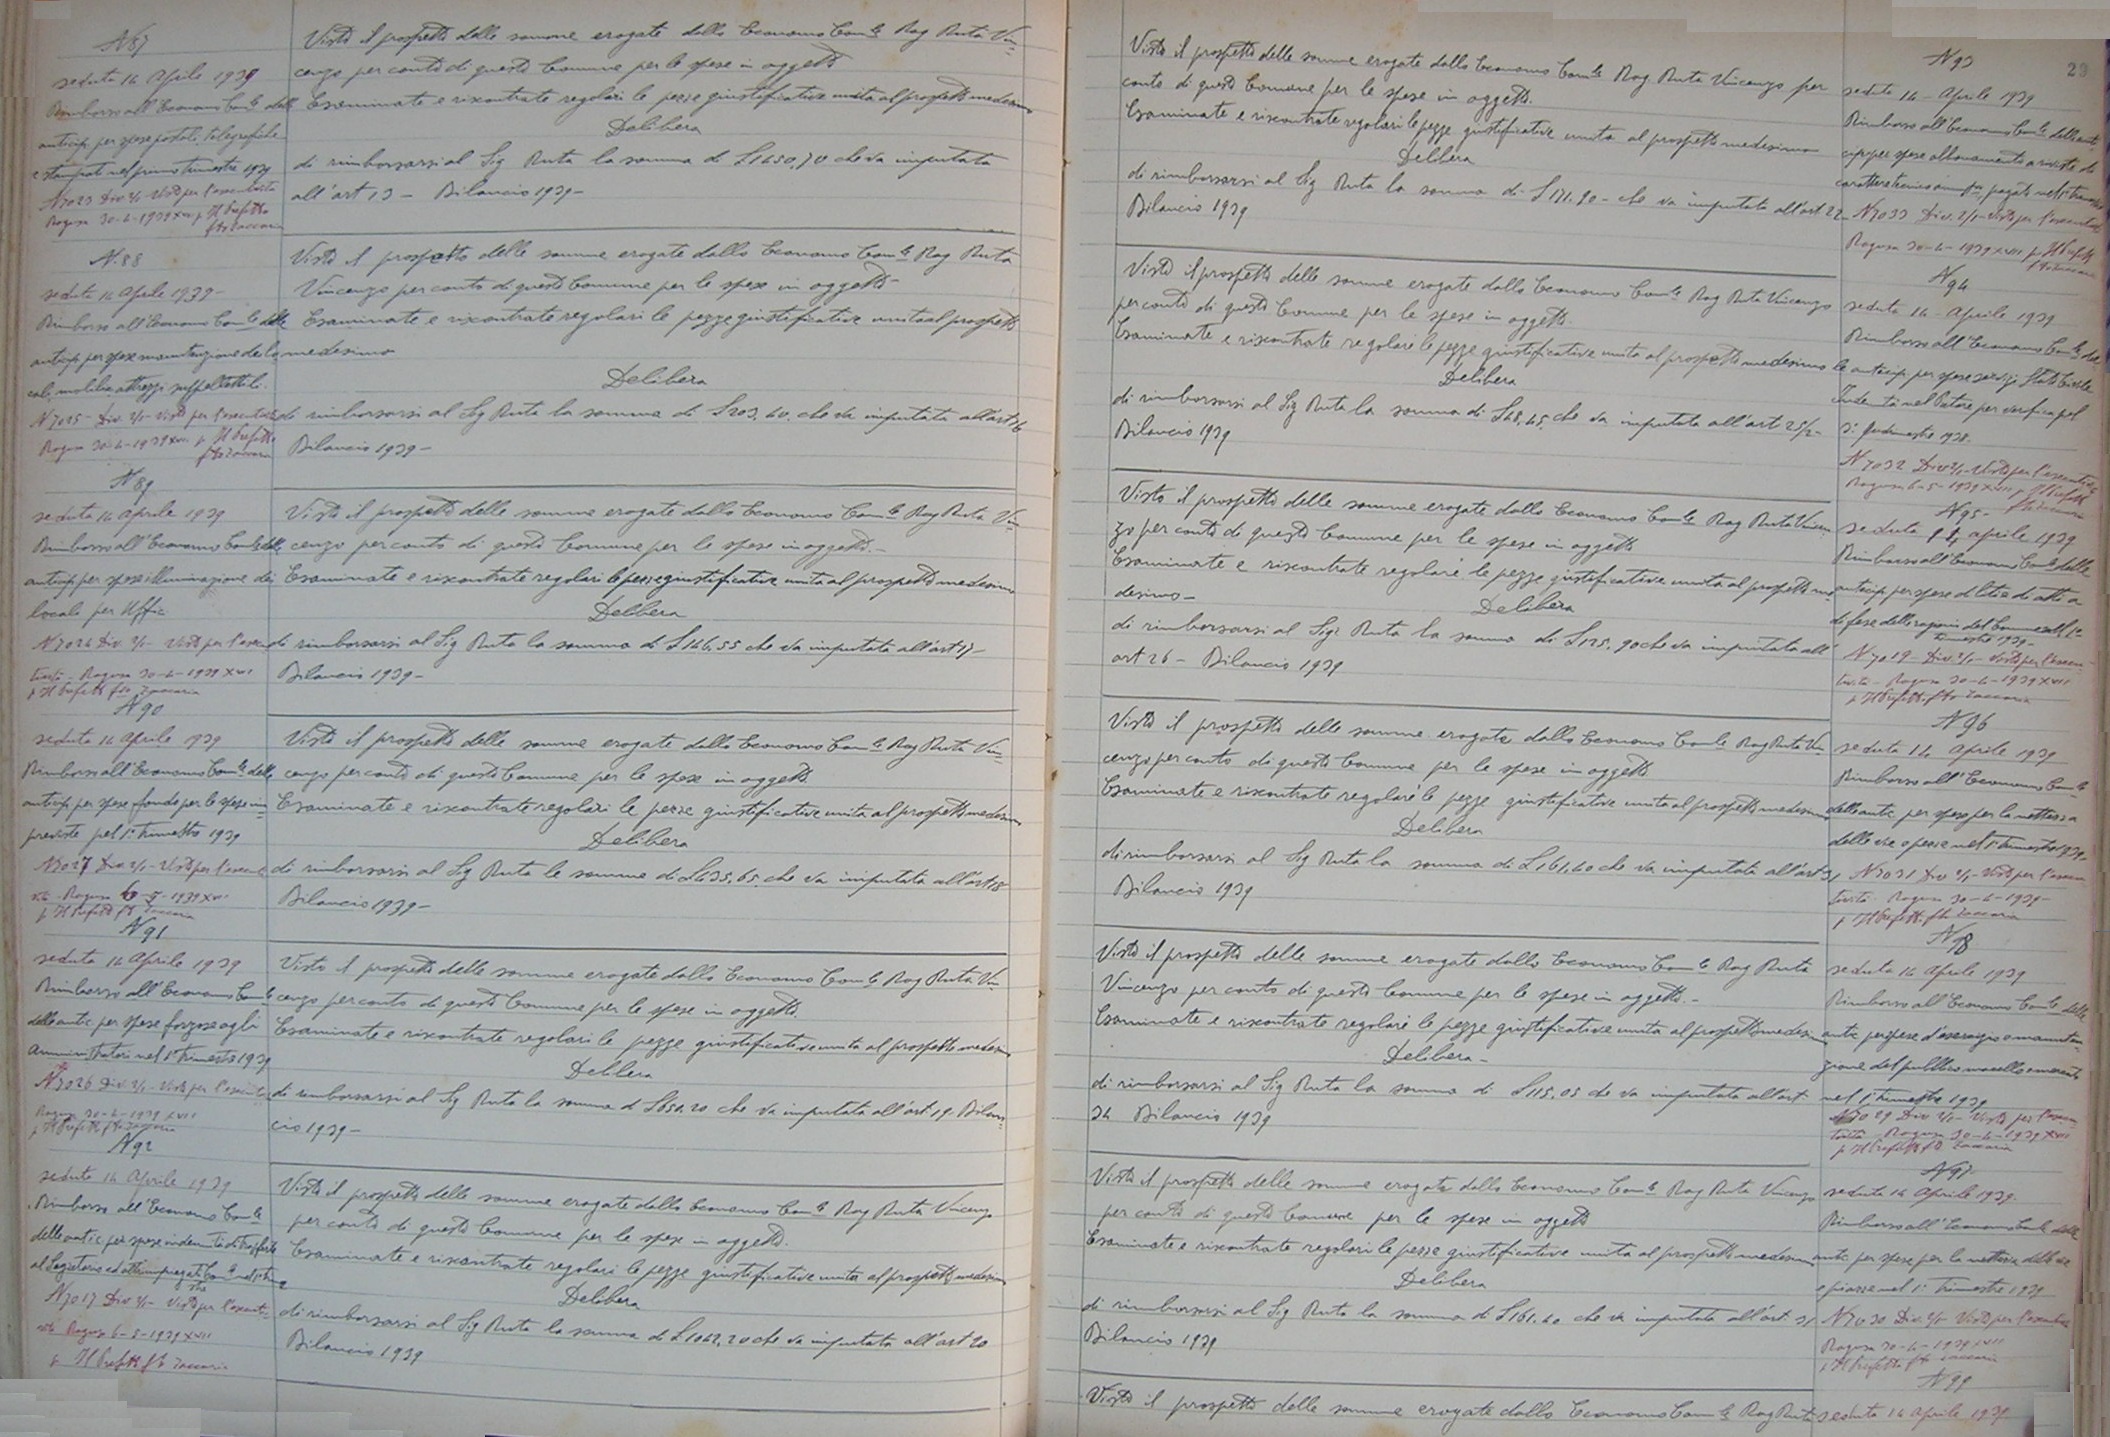 N 87
seduta 14 Aprile 1939
Rimborso all'Economo Com.le delle
anticip. per spese postali telegrafiche
e stampati nel primo trimestre 1939
N 7023 Div 2/1 - Visto per l'esecutività
Ragusa 30-4-1939 XVII p Il Prefetto
fto Zaccaria
Visto il prospetto delle somme erogate dallo Economo Com.le Rag Ruta Vin-
cenzo per conto di questo Comune per le spese in oggetto
Esaminate e riscontrate regolari le pezze giustificative unite al prospetto medesimo
Delibera
di rimborsarsi al Sig Ruta la somma di £ 1650,70 che va imputata
all'art 13 - Bilancio 1939-
N. 88
seduta 14 Aprile 1939-
Rimborso all'Economo Com.le delle
anticip. per spese manutenzione de lo
cali, mobilio attrezzi suppellettili.
N 7025 - Div 2/1 - Visto per l'esecutività
Ragusa 30-4-1939 XVII. p Il Prefetto
fto Zaccaria
Visto il prospetto delle somme erogate dallo Economo Com.le Rag Ruta
Vincenzo per conto di questo Comune per le spese in oggetto-
Esaminate e riscontrate regolari le pezze giustificative unite al prospetto
medesimo
Delibera
di rimborsarsi al Sig Ruta la somma di £ 203,40. che va imputata all'art 16
Bilancio 1939-
N 89
seduta 14 Aprile 1939
Rimborso all'Economo Com.le delle
anticip per spese illuminazione dei
locali per Uffici
N 7024 Div. 2/1 - Visto per l'esecu
tività - Ragusa 30-4-1939 XVII
p Il Prefetto fto Zaccaria
Visto il prospetto delle somme erogate dallo Economo Com.le Rag Ruta Vin
cenzo per conto di questo Comune per le spese in oggetto.-
Esaminate e riscontrate regolari le pezze giustificative unite al prospetto medesimo
Delibera
di rimborsarsi al Sig Ruta la somma di £ 146,55 che va imputata all'art 17-
Bilancio 1939-
N 90
seduta 14 Aprile 1939
Rimborso all'Economo Com.le delle
anticip. per spese fondo per le spese im
previste pel 1° trimestre 1939
N 7027 Div 2/1 - Visto per l'esecuti
vità. Ragusa 6-5-1939 XVII
p Il Prefetto fto Zaccaria
Visto il prospetto delle somme erogate dallo Economo Com.le Rag Ruta Vin-
cenzo per conto di questo Comune per le spese in oggetto
Esaminate e riscontrate regolari le pezze giustificative unite al prospetto medesimo
Delibera
di rimborsarsi al Sig Ruta la somma di £ 435,65. che va imputata all'art 18
Bilancio 1939-
N 91
seduta 14 Aprile 1939
Rimborso all'Economo Com.le
delle antic. per spese forzose agli
Amministratori nel 1° Trimestre 1939
N 7026 Div. 2/1 - Visto per l'esecutività
Ragusa 30-4-1939 XVII
p Il Prefetto fto Zaccaria
Visto il prospetto delle somme erogate dallo Economo Com.le Rag Ruta Vin-
cenzo per conto di questo Comune per le spese in oggetto.
Esaminate e riscontrate regolari le pezze giustificative unite al prospetto medesimo
Delibera
di rimborsarsi al Sig Ruta la somma di £ 654.20 che va imputata all'art. 19. Bilan-
cio 1939-
N 92
seduta 14 Aprile 1939
Rimborso all'Economo Com.le
delle antic. per spese indennità di trasferte
al Segretario ed altri impiegati Com.li nel 1° trime
N 7017 Div 2/1 - Visto per l'esecuti-
vità Ragusa 6-5-1939 XVII
p Il Prefetto fto Zaccaria
Visto il prospetto delle somme erogate dallo Economo Com.le Rag Ruta Vincenzo
per conto di questo Comune per le spese in oggetto.
Esaminate e riscontrate regolari le pezze giustificative unite al prospetto medesimo
Delibera
di rimborsarsi al Sig Ruta la somma di £ 1062,20 che va imputata all'art 20
Bilancio 1939
29
Visto il prospetto delle somme erogate dallo Economo Com.le Rag Ruta Vincenzo per
conto di questo Comune per le spese in oggetto.
Esaminate e riscontrate regolari le pezze giustificative unite al prospetto medesimo
Delibera
di rimborsarsi al Sig Ruta la somma di £ 171.90 - che va imputata all'art 22
Bilancio 1939
N 93
seduta 14 - Aprile 1939
Rimborso all'Economo Com.le delle anti
cip. per spese abbonamento a riviste di
carattere tecnico amm. pagate nel 1° trimestre
N 7033 Div. 2/1 - Visto per l'esecutività
Ragusa 30-4-1939 XVII p Il Prefetto
fto Zaccaria
Visto il prospetto delle somme erogate dallo Economo Com.le Rag Ruta Vincenzo
per conto di questo Comune per le spese in oggetto.
Esaminate e riscontrate regolari le pezze giustificative unite al prospetto medesimo
Delibera
di rimborsarsi al Sig Ruta la somma di £ 48,45. che va imputata all'art 25/2-
Bilancio 1939
N 94
seduta 14 - Aprile 1939
Rimborso all'Economo Com.le del
le anticip. per spese servizi Stato Civile
Indennità nel Pretore per verifica pel
3° quadrimestre 1938.
N 7032 Div 2/1 - Visto per l'esecutività
Ragusa 6-5-1939 XVII p Il Prefetto
fto Zaccaria
Visto il prospetto delle somme erogate dallo Economo Com.le Rag Ruta Vincen
zo per conto di questo Comune per le spese in oggetto
Esaminate e riscontrate regolari le pezze giustificative unite al prospetto me
desimo-
Delibera
di rimborsarsi al Sig. Ruta la somma di £ 125,90 che va imputata all'
art 26 - Bilancio 1939
N 95-
seduta 14 aprile 1939
Rimborso all'Economo Com.le delle
anticip. per spese di liti e di atti a
difese delle ragioni del Comune nel 1°
trimestre 1939-
N 7019 - Div. 2/1 - Visto per l'esecu-
tività - Ragusa 30-4-1939 XVII
p Il Prefetto. fto Zaccaria
Visto il prospetto delle somme erogate dallo Economo Com.le Rag Ruta Vin
cenzo per conto di questo Comune per le spese in oggetto
Esaminate e riscontrate regolari le pezze giustificative unite al prospetto medesimo
Delibera
di rimborsarsi al Sig Ruta la somma di £ 161,40 che va imputata all'art 31
Bilancio 1939
N 96
seduta 14 aprile 1939
Rimborso all'Economo Com.le
delle antic. per spese per la nettezza
delle vie e piazze nel 1° trimestre 1939-
N 7031 Div 2/1 - Visto per l'esecu
tività - Ragusa 30-4-1939-
p Il Prefetto. fto Zaccaria
Visto il prospetto delle somme erogate dallo Economo Com.le Rag Ruta
Vincenzo per conto di questo Comune per le spese in oggetto.-
Esaminate e riscontrate regolari le pezze giustificative unite al prospetto medesimo
Delibera-
di rimborsarsi al Sig Ruta la somma di £ 115,05 che va imputata all'art
34 Bilancio 1939
N 98
seduta 14 Aprile 1939
Rimborso all'Economo Com.le delle
antic. per spese d'esercizio e manuten-
zione del pubblico macello e mercato
nel 1° trimestre 1939
N 7029 Div 2/1 - Visto per l'esecu-
tività - Ragusa 30-4-1939 XVII
p Il Prefetto fto Zaccaria
Visto il prospetto delle somme erogate dallo Economo Com.le Rag Ruta Vincenzo
per conto di questo Comune per le spese in oggetto
Esaminate e riscontrate regolari le pezze giustificative unite al prospetto medesimo
Delibera
di rimborsarsi al Sig Ruta la somma di £ 161.40 che va imputata all'art. 31
Bilancio 1939
N 97-
seduta 14 Aprile 1939.
Rimborso all'Economo Com.le delle
antic. per spese per la nettezza delle vie
e piazze nel 1° Trimestre 1939
N 7030 Div. 2/1 - Visto per l'esecutività
Ragusa 30-4-1939 XVII
p Il Prefetto fto Zaccaria
N 99
Visto il prospetto delle somme erogate dallo Economo Com.le Rag Ruta
seduta 14 Aprile 1939